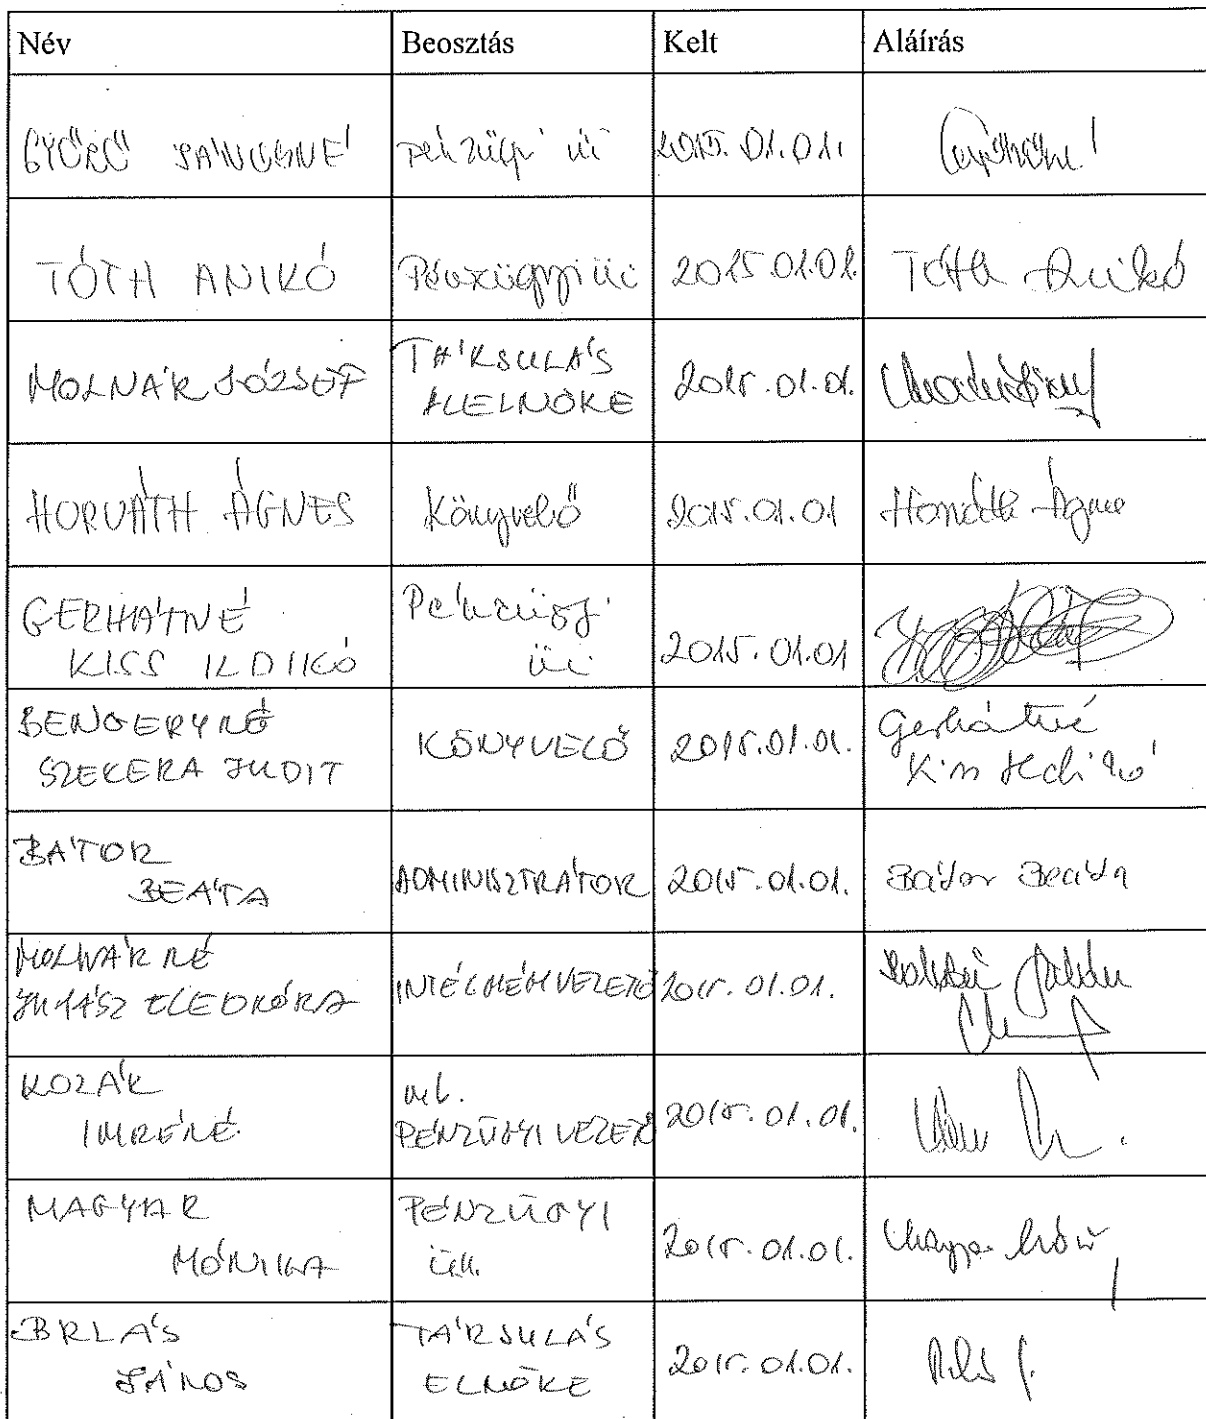 Név Beosztás Kelt Aláírás
GYŐRŐ JÁNOSNÉ pénzügyi üi 2015.01.01.
TÓTH ANIKÓ Pénzügyi üi 2015.01.01. Tóth Anikó
MOLNÁR JÓZSEF TÁRSULÁS 2015.01.01.
ALELNÖKE
HORVÁTH ÁGNES Könyvelő 2015.01.01 Horváth Ágnes
GERHÁTNÉ Pénzügyi
KISS ILDIKÓ üi 2015.01.01
BENGERYNÉ KÖNYVELŐ 2015.01.01. Gerhátné
SZEKERA JUDIT Kiss Ildikó
BÁTOR
BEÁTA ADMINISZTRÁTOR 2015.01.01. Bátor Beáta
MOLNÁRNÉ
JUHÁSZ ELEONÓRA INTÉZMÉNYVEZETŐ 2015.01.01.
KOZÁK mb.
IMRÉNÉ PÉNZÜGYI VEZETŐ 2015.01.01.
MAGYAR PÉNZÜGYI
MÓNIKA üi. 2015.01.01.
BRLÁS TÁRSULÁS
JÁNOS ELNÖKE 2015.01.01.